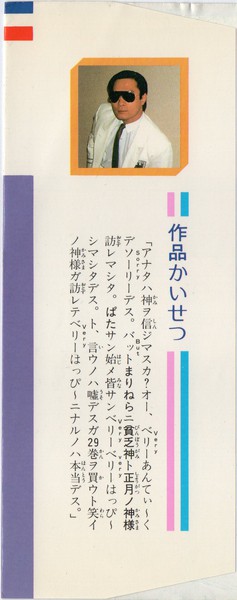 作品かいせつ
「アナタハ神ヲ信ジマスカ?オー、ベリーあんてぃ〜く
デソーリーデス。バットまりねらニ貧乏神ト正月ノ神様
訪レマシタ。ぱたサン始メ皆サンベリーベリーはっぴ〜
シマシタデス。ト、言ウノハ嘘デスガ29巻ヲ買ウト笑イ
ノ神様ガ訪レテベリーはっぴ〜ニナルノハ本当デス。」